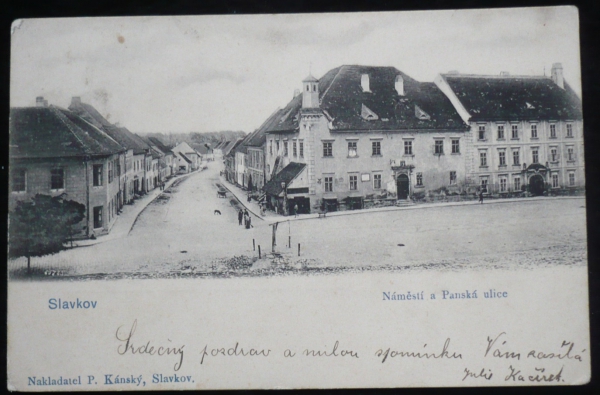 Slavkov
Náměstí a Panská ulice
Srdečný pozdrav a milou vzpomínku Vám zasílá
Julie
Nakladatel P. Kánský, Slavkov.